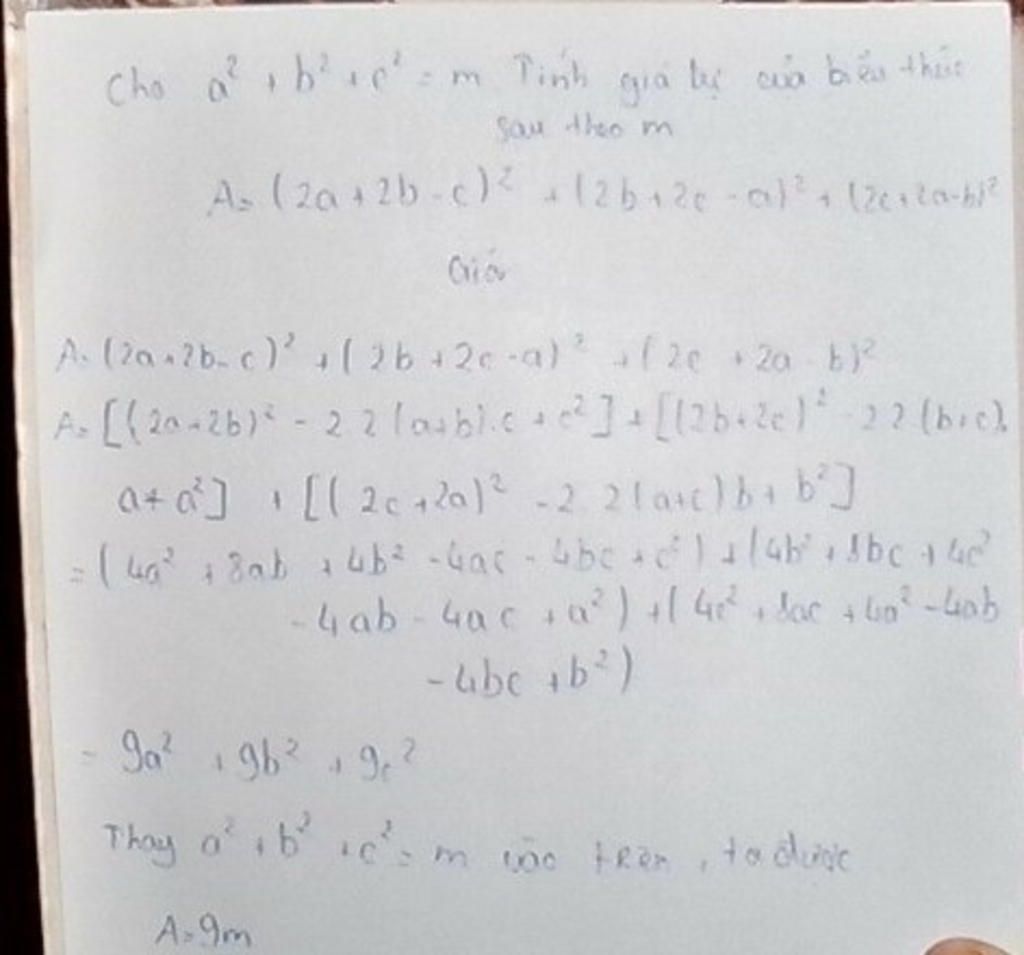 Cho a² + b² + c² = m Tính giá trị của biểu thức
sau theo m
A = (2a + 2b - c)² + (2b + 2c - a)² + (2c + 2a - b)²
Giải
A = (2a + 2b - c)² + (2b + 2c - a)² + (2c + 2a - b)²
A = [(2a + 2b)² - 2.2(a+b).c + c²] + [(2b + 2c)² - 2.2(b+c).
a + a²] + [(2c + 2a)² - 2.2(a+c)b + b²]
= (4a² + 8ab + 4b² - 4ac - 4bc + c²) + (4b² + 8bc + 4c²
- 4ab - 4ac + a²) + (4c² + 8ac + 4a² - 4ab
- 4bc + b²)
= 9a² + 9b² + 9c²
Thay a² + b² + c² = m vào trên, ta được
A = 9m